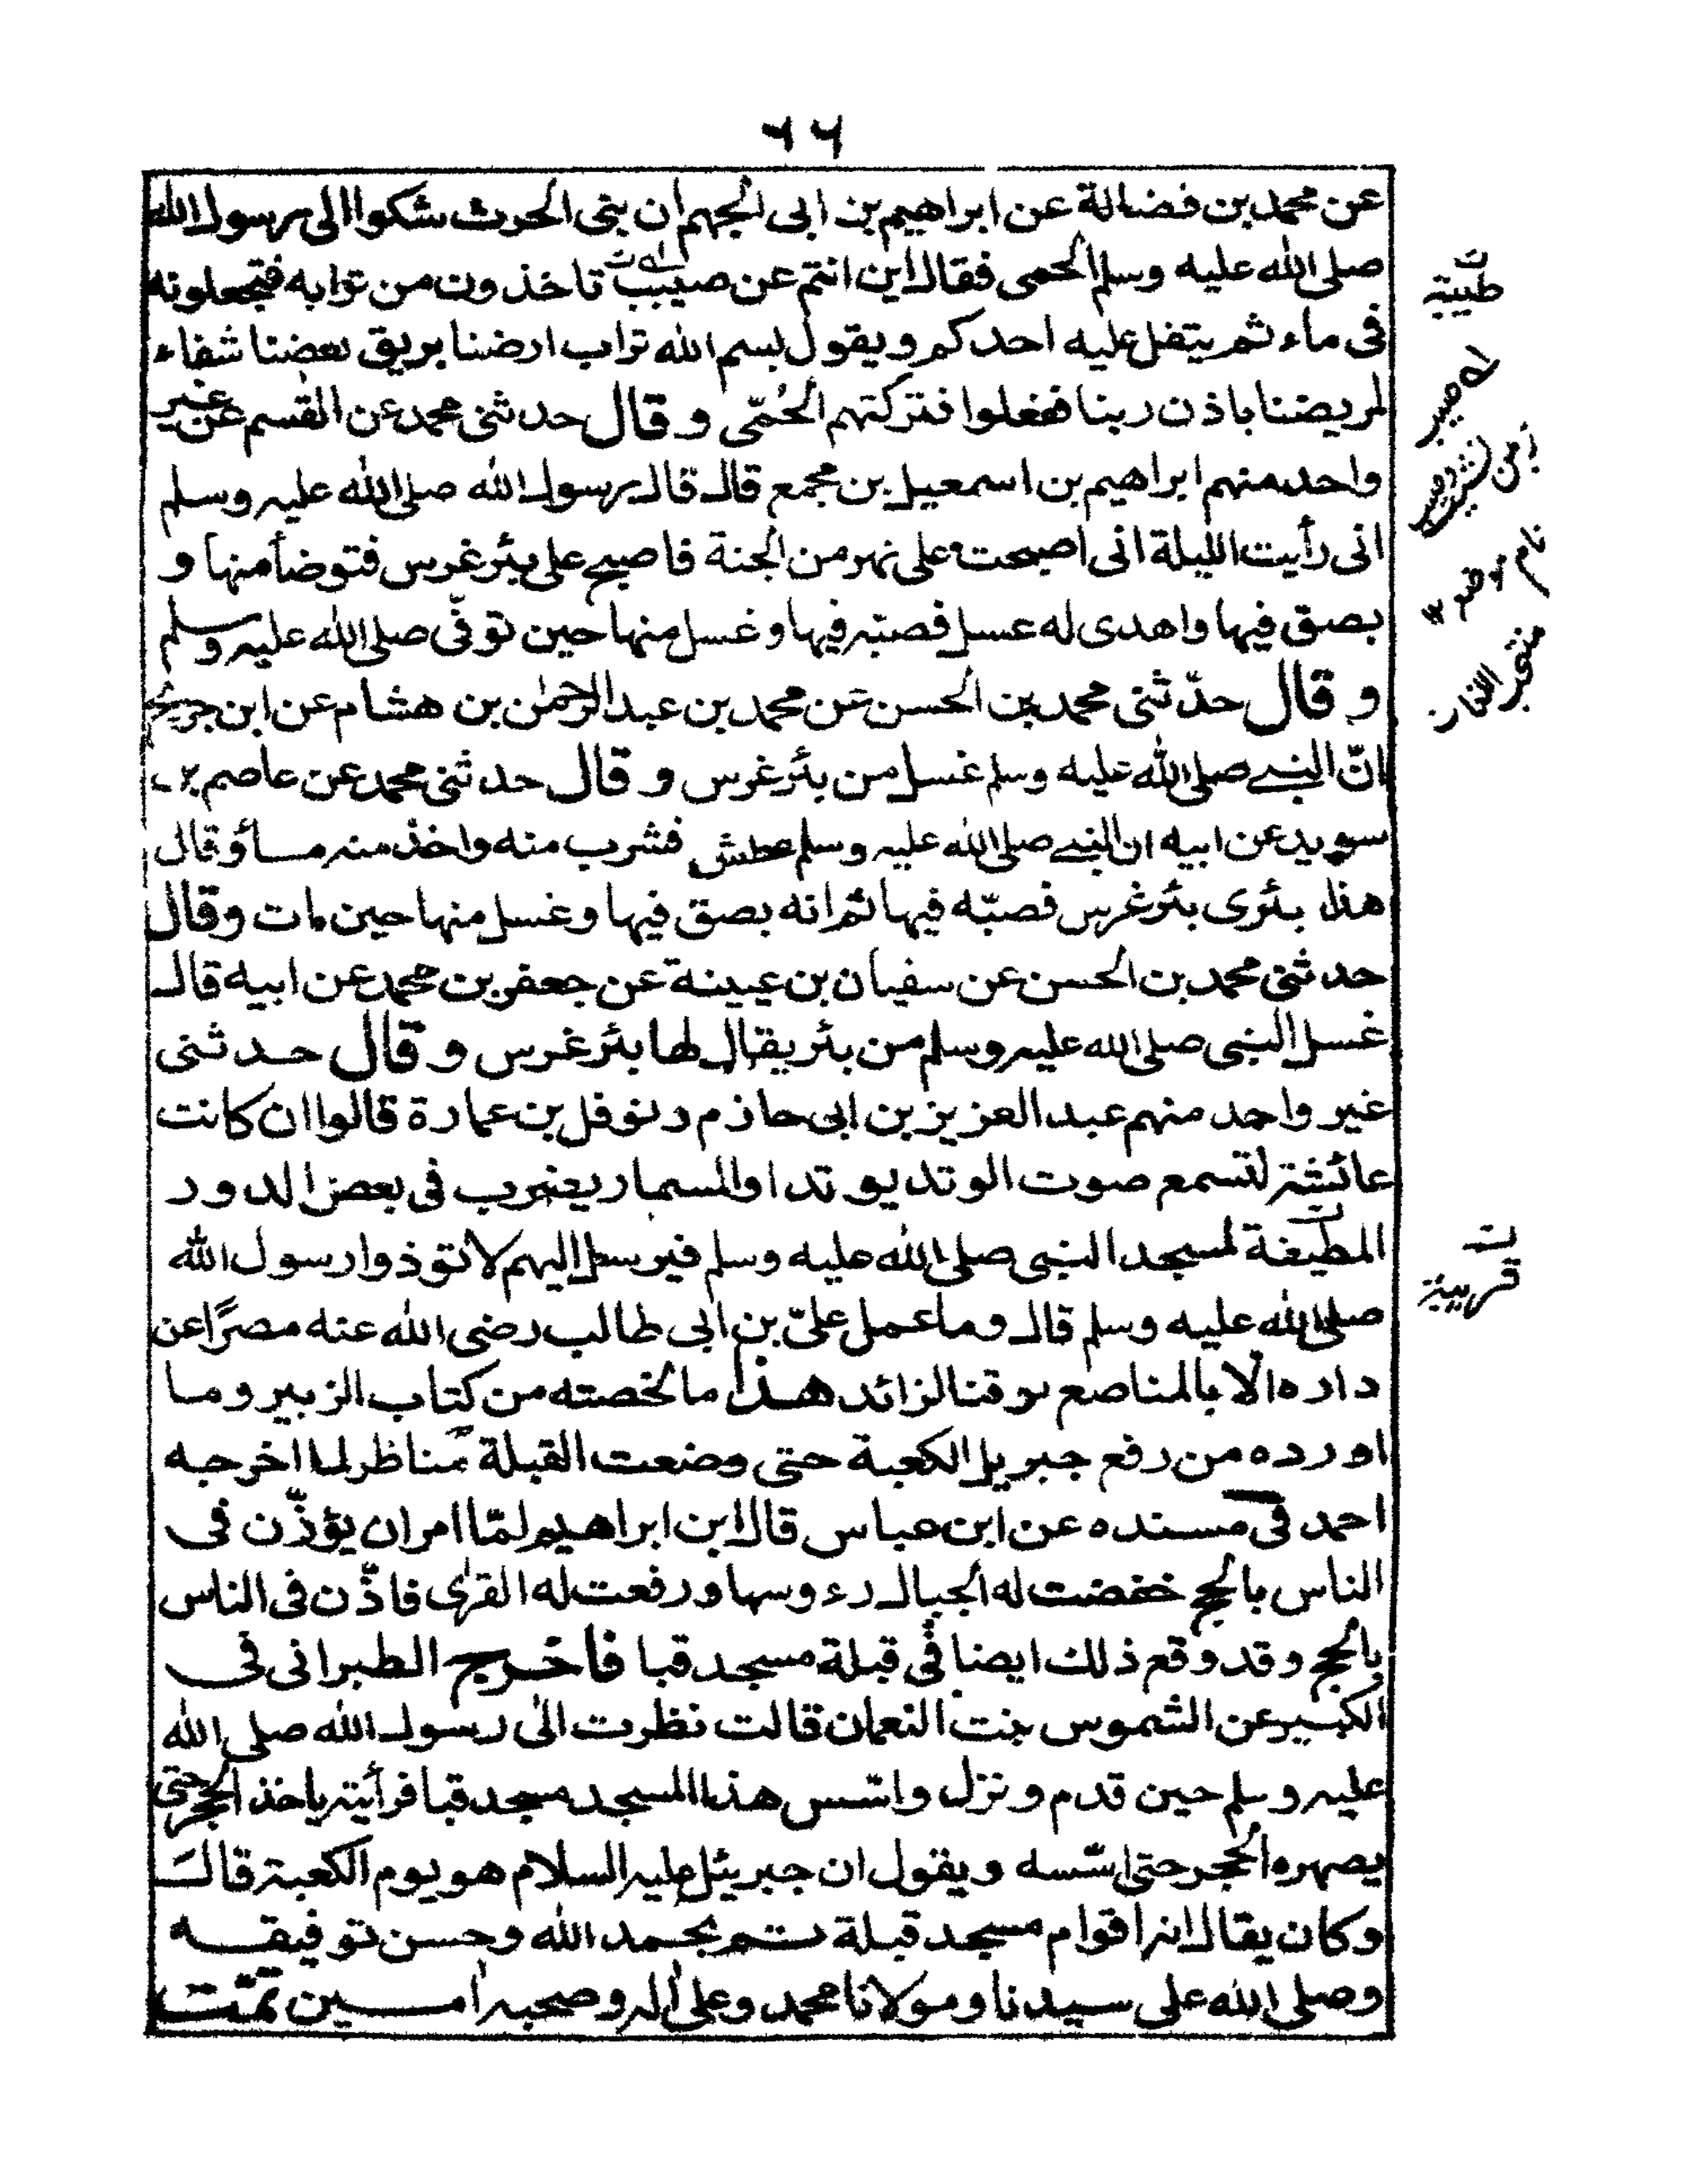 ٦٦
عن محمد بن فضالة عن ابراهيم بن ابى الجهم ان بنى الحرث شكوا الى رسول الله
صلى الله عليه وسلم الحمى فقال اين انتم عن صبيب تاخذون من ترابه فتجعلونه
فى ماء ثم يتفل عليه احدكم ويقول بسم الله تراب ارضنا بريق بعضنا شفاء
لمريضنا باذن ربنا ففعلوا فتركتهم الحُمّى وقال حدثنى محمد عن القسم عن غير
واحد منهم ابراهيم بن اسمعيل بن مجمع قال قال رسول الله صلى الله عليه وسلم
انى رأيت الليلة انى اصبحت على نهر من الجنة فاصبح على بئر غرس فتوضأ منها و
بصق فيها واهدى له عسل فصبّه فيها وغسل منها حين توفّى صلى الله عليه وسلم
وقال حدّثنى محمد بن الحسن عن محمد بن عبد الرحمٰن بن هشام عن ابن جريج
انّ النبى صلى الله عليه وسلم غسل من بئر غرس وقال حدثنى محمد عن عاصم بن
سويد عن ابيه ان النبى صلى الله عليه وسلم عطش فشرب منه واخذ منه ماأ وقال
هذا بئرى بئر غرس فصبّه فيها ثم انه بصق فيها وغسل منها حين مات وقال
حدثنى محمد بن الحسن عن سفيان بن عيينة عن جعفر بن محمد عن ابيه قال
غسل النبى صلى الله عليه وسلم من بئر يقال لها بئر غرس وقال حدثنى
غير واحد منهم عبد العزيز بن ابى حازم ونوفل بن عمارة قالوا ان كانت
عائشة لتسمع صوت الوتد يوتد او المسمار يضرب فى بعض الدور
المطيفة لمسجد النبى صلى الله عليه وسلم فيرسل اليهم لا توذوا رسول الله
صلى الله عليه وسلم قال وما عمل علىّ بن ابى طالب رضى الله عنه مصرًاعن
داره الّا بالمناصع هذا ما لخصته من كتاب الزبير وما
اورده من رفع جبريل الكعبة حتى وضعت القبلة مناظر لما اخرجه
احمد فى مسنده عن ابن عباس قال ابن ابراهيم لمّا امر ان يؤذّن فى
الناس بالحج خفضت له الجبال رءوسها ورفعت له القرى فاذّن فى الناس
بالحج وقد وقع ذلك ايضا فى قبلة مسجد قبا فاخرج الطبرانى فى
الكبير عن الشموس بنت النعمان قالت نظرت الى رسول الله صلى الله
عليه وسلم حين قدم ونزل واسّس هذا المسجد مسجد قبا فرأيته ياخذ الحجر حتى
يصهره الحجر حتى اسّسه ويقول ان جبرئيل عليه السلام هو يوم الكعبة قالت
وكان يقال انه اقوام مسجد قبلة تم بحمد الله وحسن توفيقه
وصلى الله على سيدنا ومولانا محمد وعلى اله وصحبه امين تمّت
ت
طيبة
ت
قريبة